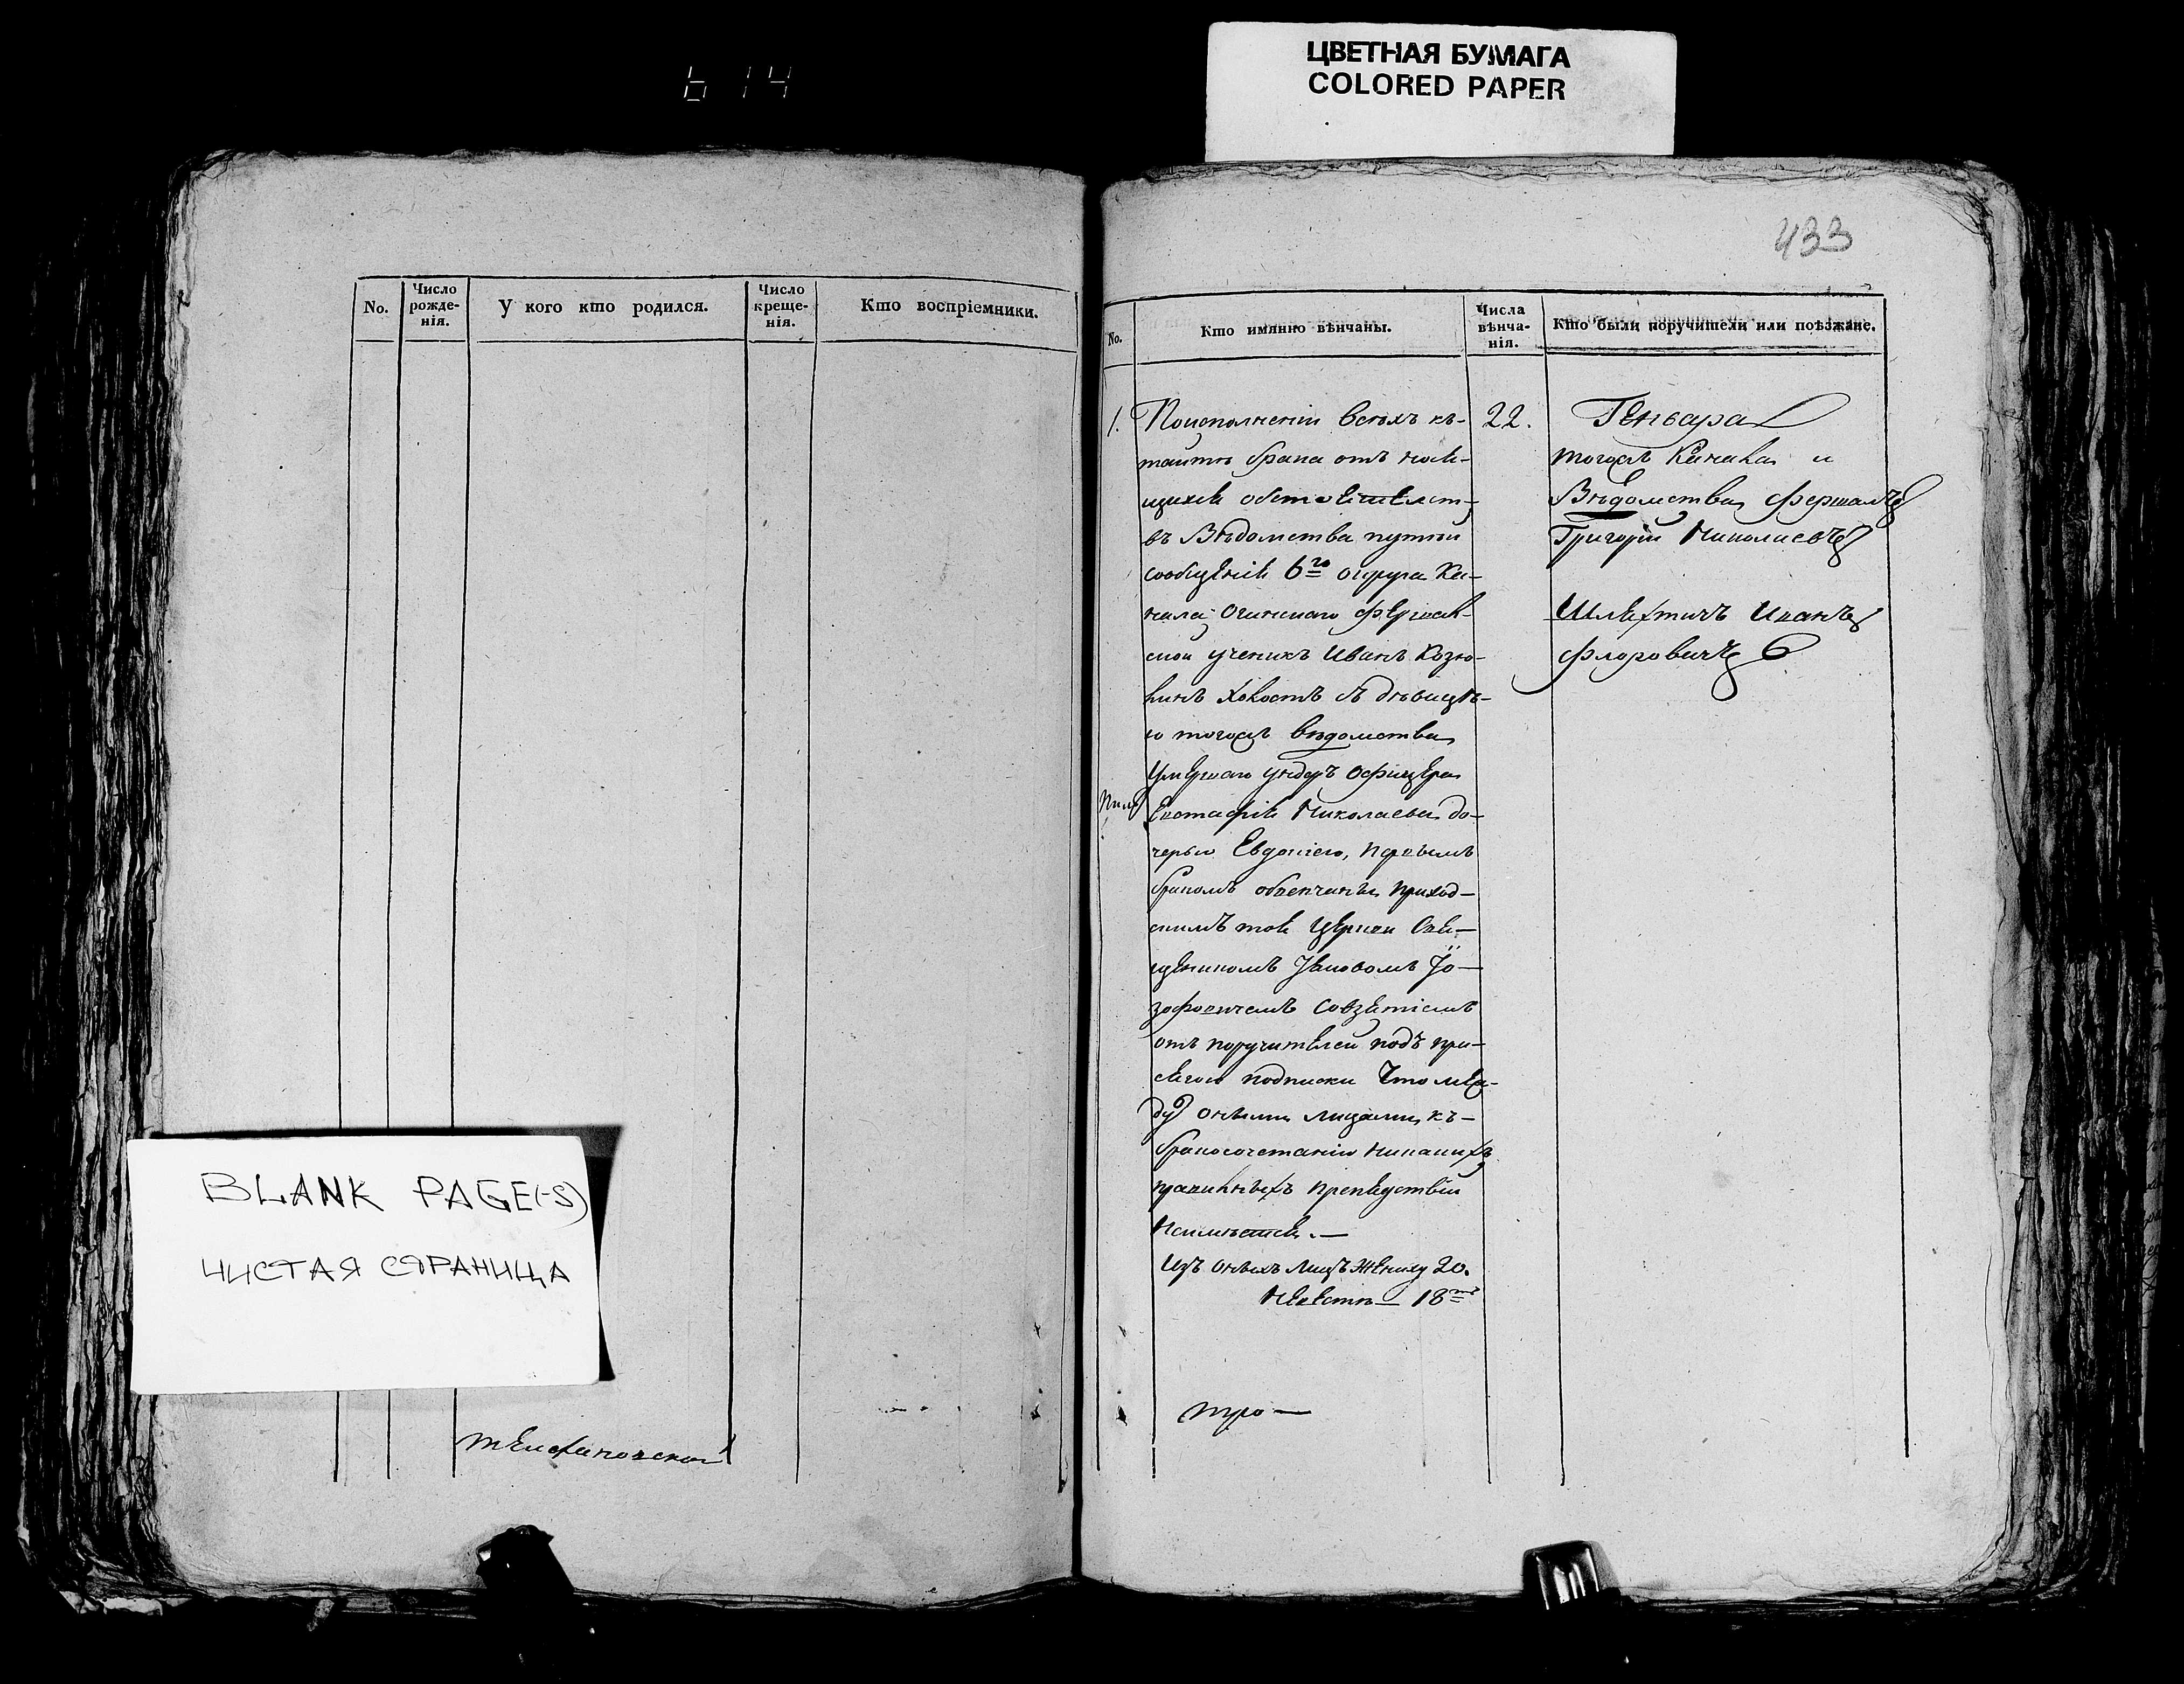 614
ЦВЕТНАЯ БУМАГА
COLORED PAPER
433
No.
Число рожде-нія.
У кого кто родился.
Число креще-нія.
Кто воспріемники.
BLANK PAGE(-S)
ЧИСТАЯ СТРАНИЦА
No.
Кто имянно вѣнчаны.
Числа вѣнча-нія.
Кто были поручители или поѣзжане.
1. Поисполненіи всѣхъ къ-
таинѣ брака отъ нося-
щихся
въ Вѣдомства путей
сообщенія 6го округа Ка-
нала Огинскаго Фершал-
скои ученикъ Иванъ Козю-
кинъ холостъ съ дѣвицѣ-
ю тогожъ вѣдомства
Умершаго ундеръ офицера
Евстафія Николаева до-
черью Евдокіею, первымъ
бракомъ обвенчаны приход-
скимъ тоя Церкви Свя-
щеникомъ Яковомъ Іо-
зофовичемъ Совзятіемъ
отъ поручителей подъ при-
сягою подписки Что меж-
ду оными лицами къ-
бракосочетанію никакихъ
правилныхъ препядствій
неимѣется.—
Изъ оныхъ лицъ Жениху 20.
Невѣстѣ — 18ть
тро —
22.
Генваря
тогожъ Канала и
Вѣдомства фершалъ
Григорій Николаевъ
Шляхтичъ Иванъ
Флоровичъ